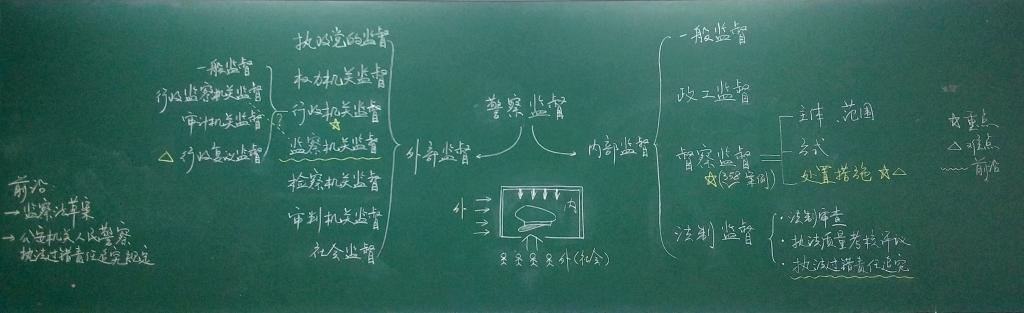 前沿
→ 监察法草案
→ 公安机关人民警察
执法过错责任追究规定
一般监督
行政监察机关监督
审计机关监督
△ 行政复议监督
?
执政党的监督
权力机关监督
行政机关监督
☆
监察机关监督
检察机关监督
审判机关监督
社会监督
外部监督
警察监督
内部监督
外
内
外(社会)
一般监督
政工监督
督察监督
☆(358案例)
法制监督
主体、范围
方式
处置措施 ☆△
· 法制审查
· 执法质量考核评议
· 执法过错责任追究
☆ 重点
△ 难点
前沿